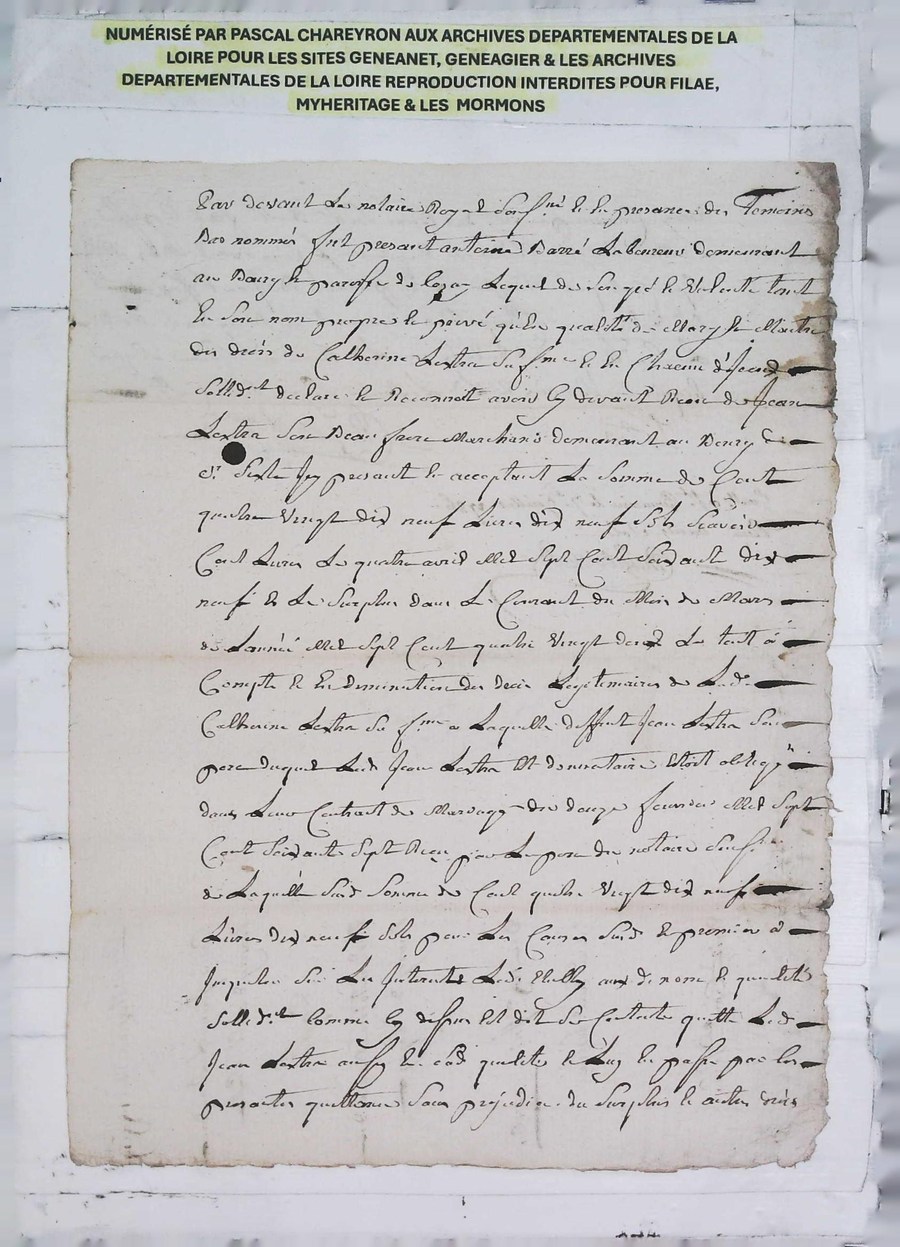 NUMÉRISÉ PAR PASCAL CHAREYRON AUX ARCHIVES DEPARTEMENTALES DE LA
LOIRE POUR LES SITES GENEANET, GENEAGIER & LES ARCHIVES
DEPARTEMENTALES DE LA LOIRE REPRODUCTION INTERDITES POUR FILAE,
MYHERITAGE & LES MORMONS
Par devant Le notaire Royal et En presance des Temoins
Bas nommés fut presant antoine Barré Laboureur demeurant
au Bourg et paroisse de Lequel de Son gré et Volonté tant
En Son nom propre et privé qu'En qualité de Mary et Maitre
des droits de Catherine Lextra Sa fme
Sollid.t declare et Reconnoit avoir Cy devant Receu de Jean
Lextra Son Beau frere Marchand demeurant au Bourg de
St Sixte Icy presant et acceptant La Somme de Cent
quatre Vingt dix neuf Livres dix neuf Sols Scavoir
Cent Livres Le quatre avril Mil Sept Cent Soixante dix
neuf et Le Surplus dans Le Courant du Mois de Mars
de Lannée Mil Sept Cent quatre Vingt deux Le tout à
Compte et En diminution des droits Legitimaires de Lade
Catherine Lextra Sa fme a Laquelle deffunt Jean Lextra Son
pere duquel Led Jean Lextra Est donnataire Etoit obligé
dans Leur Contract de Mariage du douze fevrier Mil Sept
Cent Soixante Sept Receu par Le pere du notaire
de Laquelle Susd Somme de Cent quatre Vingt dix neuf
Livres dix neuf Sols pour Les Causes Susd Le premier à
aux de nom et qualité
Sollid.t Comme Cy dessus Est dit Se Contente quitte Led
Jean Lextra et En passe par Les
presantes quittance Sans prejudice du Surplus et autres droits